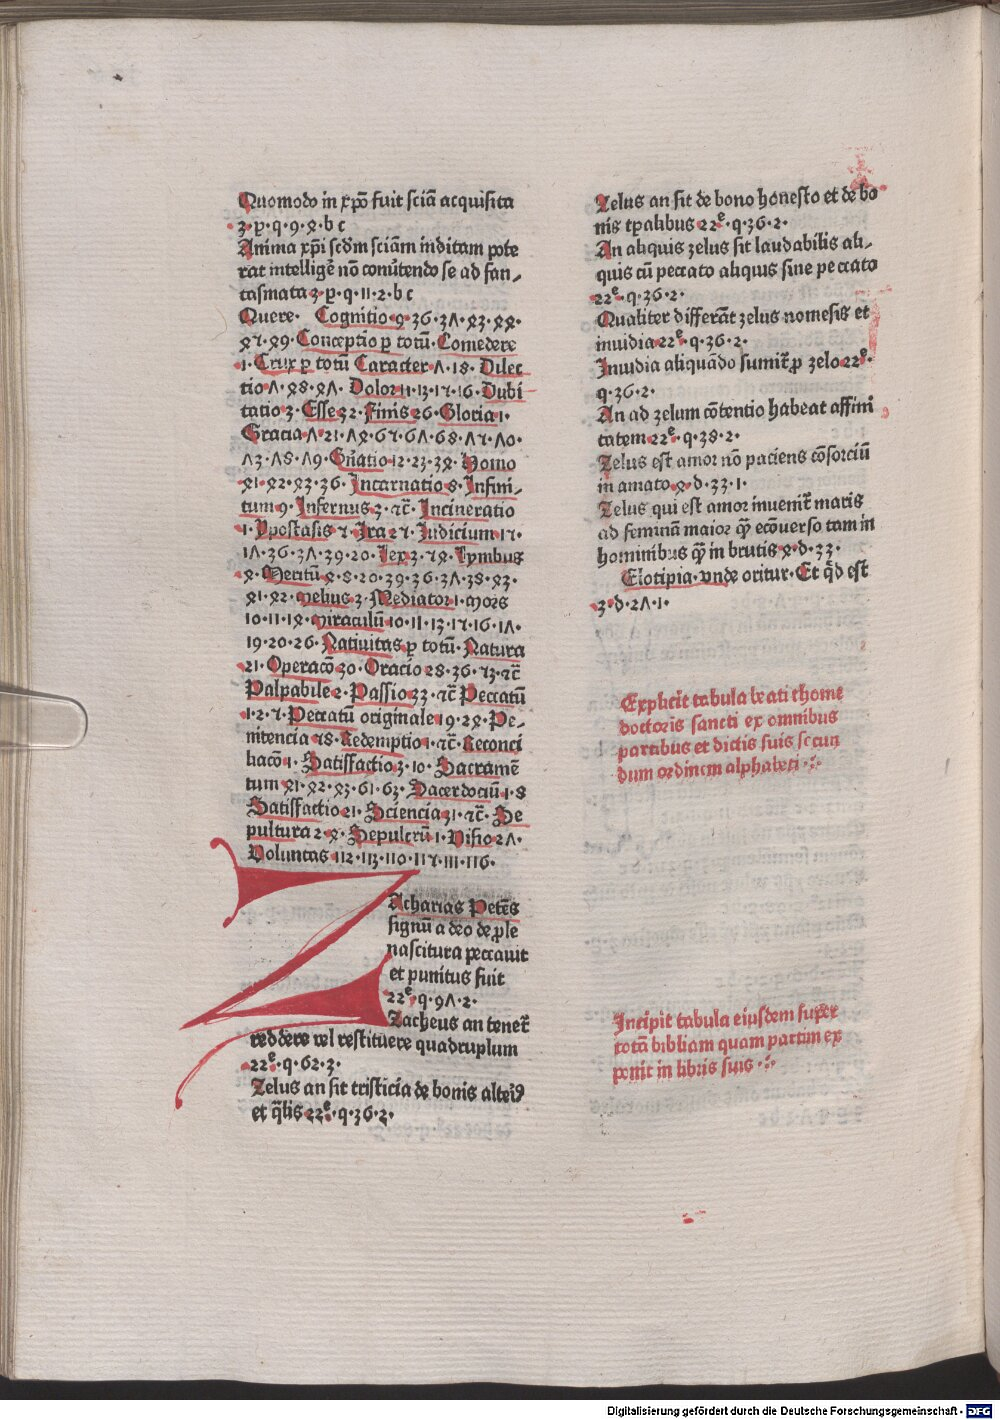 Quomodo in xp̄o fuit sciā acquisita
3·p̄·q·9·4·b c
Anima xp̄i scd̄m sciām inditam pote
rat intelligē nō conu̇tendo se ad fan-
tasmata 3·p̄·q·11·2·b c
Quere· Cognitio 9·36·37·43·44·
45·49·Conceptio p̱ totū·Comedere
1·Crux p̱ totū Caracter 7·18·Dilec
tio 7·48·47·Dolor 11·13·15·16·Dubi
tatio 3·Esse 32·Finis 26·Gloria 1·
Gracia 7·21·74·65·67·68·75·70·
73·78·79·Gn̄atio 12·23·34·Homo
41·42·43·36·Incarnatio 8·Infini-
tum 9·Infernus 3·⁊c̄·Incineratio
1·Ypostasis 5·Ira 25·Iudicium 15·
17·36·37·39·20·Lex 3·54·Lymbus
4·Meritū 4·8·20·39·36·37·38·43·
41·42·Melius 3·Mediator 1·Mors
10·11·14·Miraculū 10·11·13·15·16·17·
19·20·26·Natiuitas p̱ totū·Natura
21·Operacō 30·Oracio 28·36·53·⁊c̄
Palpabile 2·Passio 33·⁊c̄ Peccatū
1·2·5·Peccatū originale 19·24·Pe-
nitencia 58·Redemptio 1·⁊c̄·Reconci
liacō 1·Satisfactio 3·10·Sacramē
tum 41·42·43·61·63·Sacerdociū 1·8
Satisfactio 21·Sciencia 31·⁊c̄·Se
pultura 2·4·Sepulcrū 1·Visio 27·
Voluntas 112·113·110·115·111·116·
ZAcharias Petēs
signū a deo de ꝓle
nascitura peccauit
et punitus fuit
22ᵉ·q·97·2·
Zacheus an tenet̄
reddere vel restituere quadruplum
22ᵉ·q·62·3·
Zelus an sit tristicia de bonis alteriꝰ
et q̄lis 22ᵉ·q·36·2·
Zelus an sit de bono honesto et de bo
nis tp̄alibus 22ᵉ·q·36·2·
An aliquis zelus sit laudabilis ali-
quis cū peccato aliquis sine peccato
22ᵉ·q·36·2·
Qualiter differāt zelus nemesis et
inuidia 22ᵉ·q·36·2·
Inuidia aliquādo sumit̄ ꝓ zelo 22ᵉ·
q·36·2·
An ad zelum cōtentio habeat affini
tatem 22ᵉ·q·38·2·
Zelus est amor nō paciens cōsorciū
in amato 4·d·33·1·
Zelus qui est amor inuenit̄ maris
ad feminā maior q̄ ecōuerso tam in
hominibus q̄ in brutis 4·d·33·
Elotipia·vnde oritur·Et q̇d est
3·d·27·1·
Explicit tabula beati thome
doctoris sancti ex omnibus
partibus et dictis suis secun
dum ordinem alphabeti·:·
Incipit tabula eiusdem super
totā bibliam quam partim ex
ponit in libris suis·:·
Digitalisierung gefördert durch die Deutsche Forschungsgemeinschaft - DFG